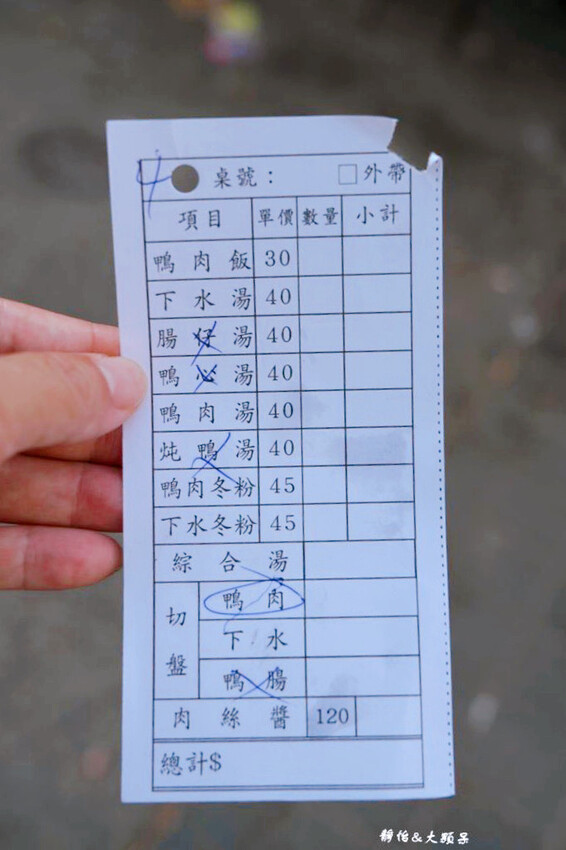 4 桌號： □外帶
項目 單價 數量 小計
鴨肉飯 30
下水湯 40
腸仔湯 40
鴨心湯 40
鴨肉湯 40
炖鴨湯 40
鴨肉冬粉 45
下水冬粉 45
綜合湯
切盤
鴨肉
下水
鴨腸
肉絲醬 120
總計$
靜怡&大顆呆